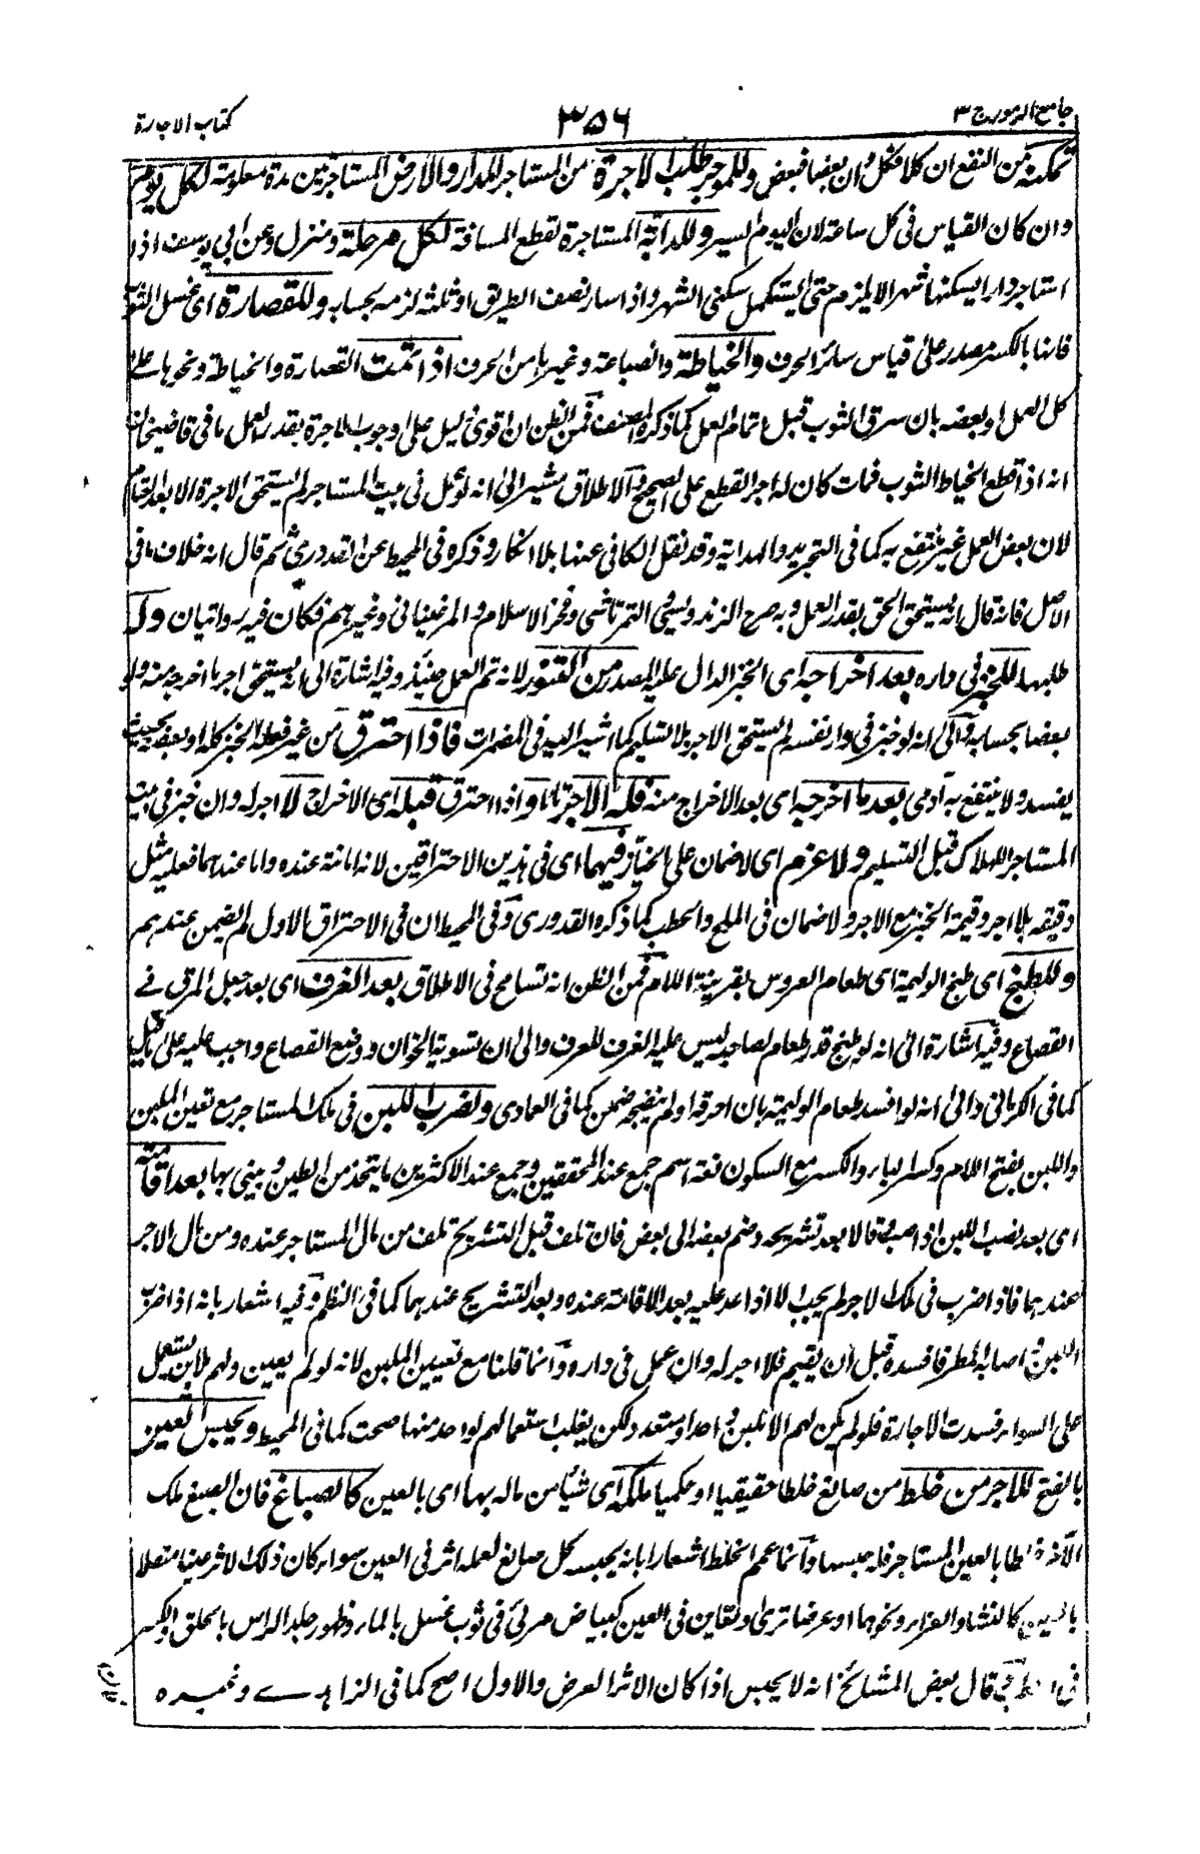 جامع الرموز ج ۳
۳۵۶
كتاب الاجارة
تمكنه من النفع ان كلا فكل وان بعضا فبعض وللموجر طلب الاجرة من المستاجر للدار والارض المستاجرتين مدة معلومة لكل يوم
وان كان القياس فى كل ساعة لان اليوم اليسير وللدابة المستاجرة لقطع المسافة لكل مرحلة ومنزل وعن ابى يوسف اذا
استاجر دارا ليسكنها شهرا لا يلزم حتى يستكمل سكنى الشهر واذا سار نصف الطريق او ثلثه لزمه بحسابه وللقصارة اى غسل الثوب
فانها بالكسر مصدر على قياس سائر الحرف والخياطة والصباغة وغيرها من الحرف اذا تمت القصارة والخياطة ونحوها على
كل العمل او بعضه بان سرق الثوب قبل اتمام العمل كما ذكره المصنف فمن الظن ان اقوى دليل على وجوب الاجرة بقدر العمل ما فى قاضيخان
انه اذا قطع الخياط الثوب فمات كان له اجر القطع على الصحيح والاطلاق مشير الى انه لو عمل فى بيت المستاجر لم يستحق الاجرة الا بعد التمام
لان بعض العمل غير منتفع به كما فى التجريد والهداية وقد نقل الكافى عنها بلا انكار وذكره فى المحيط عن القدورى ثم قال انه خلاف ما فى
الاصل فانه قال انه يستحق الحق بقدر العمل وبه صرح الزندويسى والتمرتاشى وفخر الاسلام والمرغينانى وغيرهم فكان فيه روايتان وله
طلبها للخبز فى داره بعد اخراجه اى الخبز الدال عليه المصدر من التنور لانه تم العمل حينئذ وفيه اشارة الى انه يستحق اجر ما اخرجه منه ولو
بعضا بحسابه والى انه لو خبز فى دار نفسه لم يستحق الاجر بلا تسليم كما اشير اليه فى المضمرات فاذا احترق من غير فعله الخبز كله او بعضه بحيث
يفسد ولا ينتفع به آدمى بعد ما اخرجه اى بعد الاخراج منه فله الاجر تاما واذا احترق قبله اى الاخراج لا اجر له وان خبز فى بيت
المستاجر للهلاك قبل التسليم ولا غرم اى لا ضمان على الخباز فيهما اى فى هذين الاحتراقين لانه امانة عنده واما عندهما فعليه مثل
دقيقه بلا اجر وقيمة الخبز مع الاجر ولا ضمان فى الملح والحطب كما ذكره القدورى وفى المحيط ان فى الاحتراق الاول لم يضمن عندهم
وللطبخ اى طبخ الوليمة اى طعام العروس بقرينة اللام فمن الظن انه تسامح فى الاطلاق بعد الغرف اى بعد جعل المرق فے
القصاع وفيه اشارة الى انه لو طبخ قدر طعام لصاحبه ليس عليه الغرف للعرف والى ان تسوية الخوان ووضع القصاع واجب عليه على ما قيل
كما فى الكرمانى والى انه لو افسد طعام الوليمة بان احرقه او لم ينضجه ضمن كما فى العمادى ولضرب اللبن فى ملك المستاجر مع تعين الملبن
واللبن بفتح اللام وكسر الباء والكسر مع السكون لغة اسم جمع عند المحققين وجمع عند الاكثرين ما يتخذ من الطين ويبنى بها بعد اقامته
اى بعد نصب اللبن اذا صب وقالا بعد تشريجه وضم بعضه الى بعض فان تلف قبل التشريج تلف من مال المستاجر عنده ومن مال الاجير
عندهما فاذا ضرب فى ملك الاجير لم يجب الا اذا عد عليه بعد الاقامة عنده وبعد التشريج عندهما كما فى النظم وفيه اشعار بانه اذا ضرب
اللبن واصابه المطر فافسده قبل ان يقيم فلا اجر له وان عمل فى داره وانما قلنا مع تعيين الملبن لانه لو لم يعين ولهم ملابن يستعمل
على السواء فسدت الاجارة فلو لم يكن لهم الا ملبن واحد او متعدد ولكن يغلب استعمالهم لواحد منها صحت كما فى المحيط ويحبس العين
بالفتح للاجر من خلط من صانع خلطا حقيقيا او حكميا ملكه اى شيئا من ماله بها اى بالعين كالصباغ فان الصبغ ملك
بالعين المستاجر فله حبسها وانما عمم الخلط اشعارا بانه يحبسه كل صانع لعمله اثر فى العين سواء كان ذلك الاثر عينا متصلا
كالنشا والغراء ونحوهما او عرضا ترى وتعاين فى العين كبياض مرئى فى ثوب غسل بالماء وظهور جلد الراس بالحلق والكسر
قال بعض المشائخ انه لا يحبس اذا كان الاثر العرض والاول اصح كما فى الزاهدے وغيره